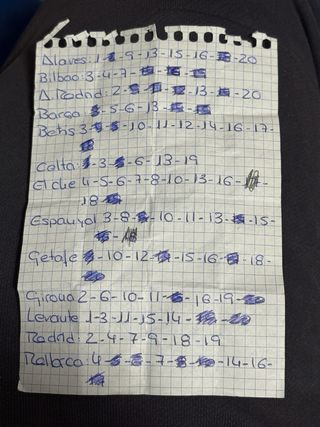 Alaves: 1- -9-13-15-16- -20
Bilbao: 3-4-7- - -
A. Madrid: 2- - - -13- -20
Barça: -5-6-13- -
Betis 3- - -10-11-12-14-16-17-
Celta: -3- -6-13-19
Elche 4-5-6-7-8-10-13-16- -
18-
Espanyol 3-8- -10-11-13- -15-
-
Getafe -10-12- -15-16- -18-
Girona 2-6-10-11- -16-19-
Levante 1-3-11-15-14- -
Madrid: 2-4-7-9-18-19
Mallorca: 4- - -7- - -14-16-